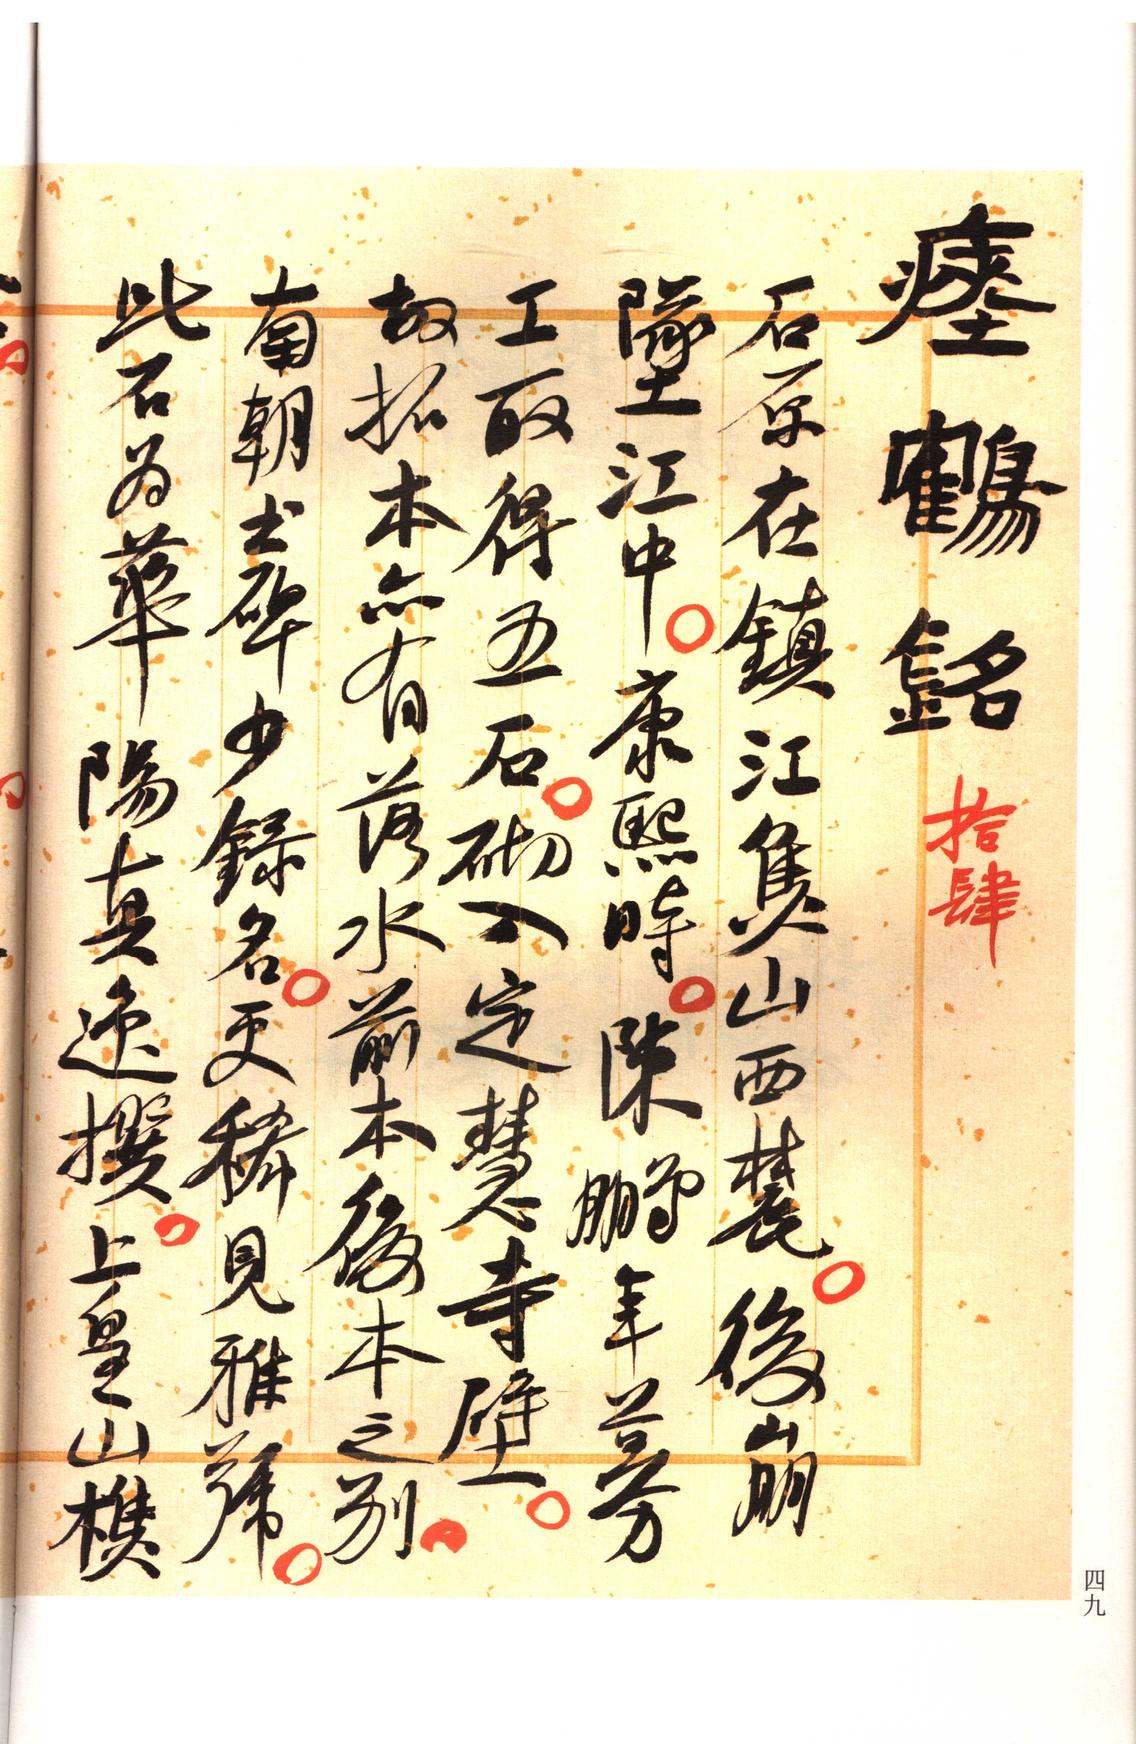 瘞鶴銘 拾肆
石原在鎮江焦山西麓後崩
墜江中康熙時陳鵬年募
工取得五石砌入定慧寺壁
故拓本亦有落水前本後本之別
南朝士碑少錄名更稀見雅號
此石為華陽真逸撰上皇山樵
四九